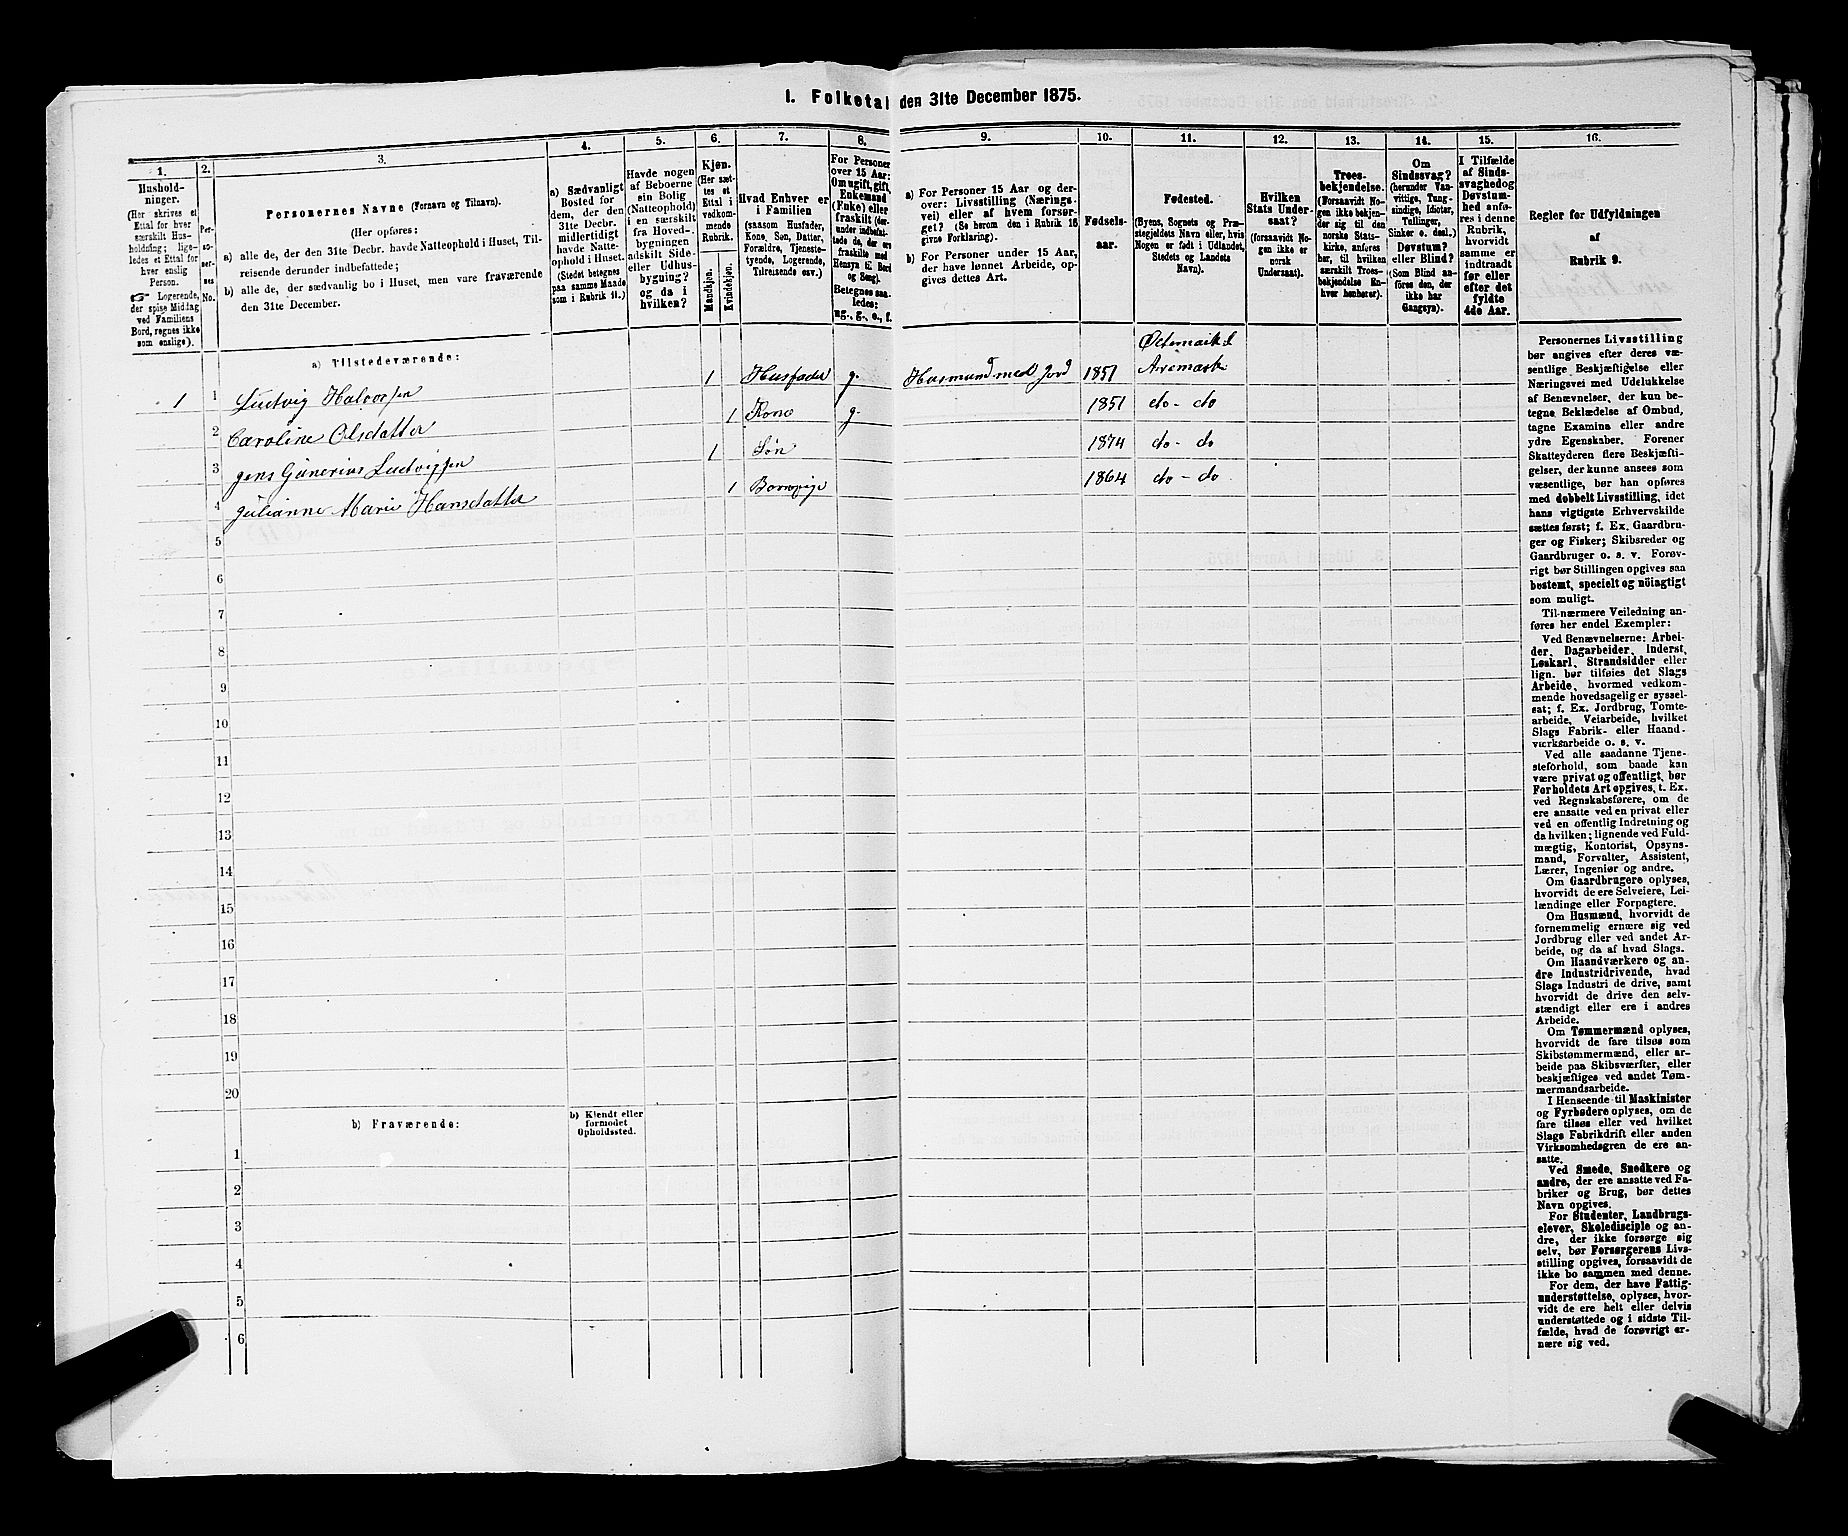 I. Folketal den 31te December 1875.
1. 2. 3. 4. 5. 6. 7. 8. 9. 10. 11. 12. 13. 14. 15. 16.
Hushold-
ninger.
(Her skrives et
Ettal for hver
særskilt Hus-
holdning; lige-
ledes et Ettal for
hver enslig
Person.
☞ Logerende,
der spise Middag
ved Familiens
Bord, regnes ikke
som enslige).
Per-
so-
ner-
nes
No.
Personernes Navne (Fornavn og Tilnavn).
(Her opføres:
a) alle de, der den 31te Decbr. havde Natteophold i Huset, Til-
reisende derunder indbefattede;
b) alle de, der sædvanlig bo i Huset, men vare fraværende
den 31te December.
a) Sædvanligt
Bosted for
dem, der den
31te Decbr.
midlertidigt
havde Natte-
ophold i Huset.
(Stedet betegnes
paa samme Maade
som i Rubrik 11.)
Havde nogen
af Beboerne
ein Bolig
(Natteophold)
i en særskilt
fra Hoved-
bygningen
adskilt Side-
eller Udhus-
bygning?
og da i
hvilken?
Kjøn.
(Her sæt-
tes et
Ettal i
vedkom-
mende
Rubrik.
Mandkjøn.
Kvindekjøn.
Hvad Enhver er
i Familien
(saasom Husfader,
Kone, Søn, Datter,
Forældre, Tjeneste-
tyende, Logerende,
Tilreisende osv.)
For Personer
over 15 Aar:
Om ugift, gift,
Enkemand
(Enke) eller
fraskilt (der-
under indbefat-
tede de, der ere
fraskilte med
Hensyn til Bord
og Seng).
Betegnes saa-
ledes:
ug., g., e., f.
a) For Personer 15 Aar og der-
over: Livsstilling (Nærings-
vei) eller af hvem forsør-
get? (Se herom den i Rubrik 16
givne Forklaring).
b) For Personer under 15 Aar,
der have lønnet Arbeide, op-
gives dettes Art.
Fødsels-
aar.
Fødested.
(Byens, Sognets og Præ-
stegjeldets Navn eller, hvis
Nogen er født i Udlandet,
Stedets og Landets
Navn).
Hvilken
Stats Under-
saat?
(forsaavidt No-
gen ikke er
norsk
Undersaat).
Troes-
bekjendelse.
(Forsaavidt No-
gen ikke bekjen-
der sig til den
norske Stats-
kirke, anføres
her, til hvilken
særskilt Troes-
bekjendelse En-
hver henhører).
Om
Sindssvag?
(herunder Van-
vittige, Tung-
sindige, Idioter,
Tullinger,
Sinker o. desl.)
Døvstum?
eller Blind?
(Som Blind an-
føres den, der
ikke har
Gangsyn).
I Tilfælde
af Sinds-
svaghed og
Døvstum-
hed anfø-
res i denne
Rubrik,
hvorvidt
samme er
indtraadt
før eller
efter det
fyldte
4de Aar.
Regler for Udfyldningen
af
Rubrik 9.
a) Tilstedeværende:
1 1 Ludvig Halvorsen 1 Husfader g. Husmand med Jord 1851 Ødemarks Aremark
2 Caroline Olsdatter 1 Kone g. 1851 do - do
3 Jens Gunerius Ludvigsen 1 Søn 1874 do - do
4 Julianne Marie Hansdatter 1 Barnepige 1864 do - do
5
6
7
8
9
10
11
12
13
14
15
16
17
18
19
20
b) Fraværende:
b) Kjendt eller
formodet
Opholdssted.
1
2
3
4
5
6
Personernes Livsstilling
bør angives efter deres væ-
sentlige Beskjæftigelse eller
Næringsvei med Udelukkelse
af Benævnelser, der kun be-
tegne Beklædelse af Ombud,
tagne Examina eller andre
ydre Egenskaber. Forener
Skatteyderen flere Beskjæfti-
gelser, der kunne ansees som
væsentlige, bør han opføres
med dobbelt Livsstilling, idet
hans vigtigste Erhvervskilde
sættes først; f. Ex. Gaardbru-
ger og Fisker; Skibsreder og
Gaardbruger o. s. v. Forøv-
rigt bør Stillingen opgives saa
bestemt, specielt og nöiagtigt
som muligt.
Til nærmere Veiledning an-
føres her endel Exempler:
Ved Benævnelserne: Arbei-
der, Dagarbeider, Inderst,
Løskarl, Strandsidder eller
lign. bør tilføies det Slags
Arbeide, hvormed vedkom-
mende hovedsagelig er syssel-
sat; f. Ex. Jordbrug, Tomte-
arbeide, Veiarbeide, hvilket
Slags Fabrik- eller Haand-
værksarbeide o. s. v.
Ved alle saadanne Tjene-
steforhold, som baade kan
være privat og offentligt, bør
Forholdets Art opgives, t. Ex.
ved Regnskabsførere, om de
ere ansatte ved en privat eller
ved en offentlig Indretning og
da hvilken; lignende ved Fuld-
mægtig, Kontorist, Opsyns-
mand, Forvalter, Assistent,
Lærer, Ingeniør og andre.
Om Gaardbrugere oplyses,
hvorvidt de ere Selveiere, Lei-
lændinge eller Forpagtere.
Om Husmænd, hvorvidt de
fornemmelig ernære sig ved
Jordbrug eller ved andet Ar-
beide, og da af hvad Slags.
Om Haandværkere og an-
dre Industridrivende, hvad
Slags Industri de drive, samt
hvorvidt de drive den selv-
stændigt eller ere i andres
Arbeide.
Om Tømmermænd oplyses,
hvorvidt de fare tilsøs som
Skibstømmermænd, eller ar-
beide paa Skibsværfter, eller
beskjæftiges ved andet Tøm-
mermandsarbeide.
I Henseende til Maskinister
og Fyrbødere oplyses, om de
fare tilsøs eller ved hvilket
Slags Fabrikdrift eller anden
Virksomhedsgren de ere an-
satte.
Ved Smede, Snedkere og
andre, der ere ansatte ved Fa-
briker og Brug, bør dettes
Navn opgives.
For Studenter, Landbrugs-
elever, Skoledisciple og an-
dre, der ikke forsørge sig
selv, bør Forsørgerens Livs-
stilling opgives, forsaavidt de
ikke bo sammen med denne.
For dem, der have Fattig-
understøttelse, oplyses, hvor-
vidt de ere helt eller delvis
understøttede og i sidste Til-
fælde, hvad de forøvrigt er-
nære sig ved.